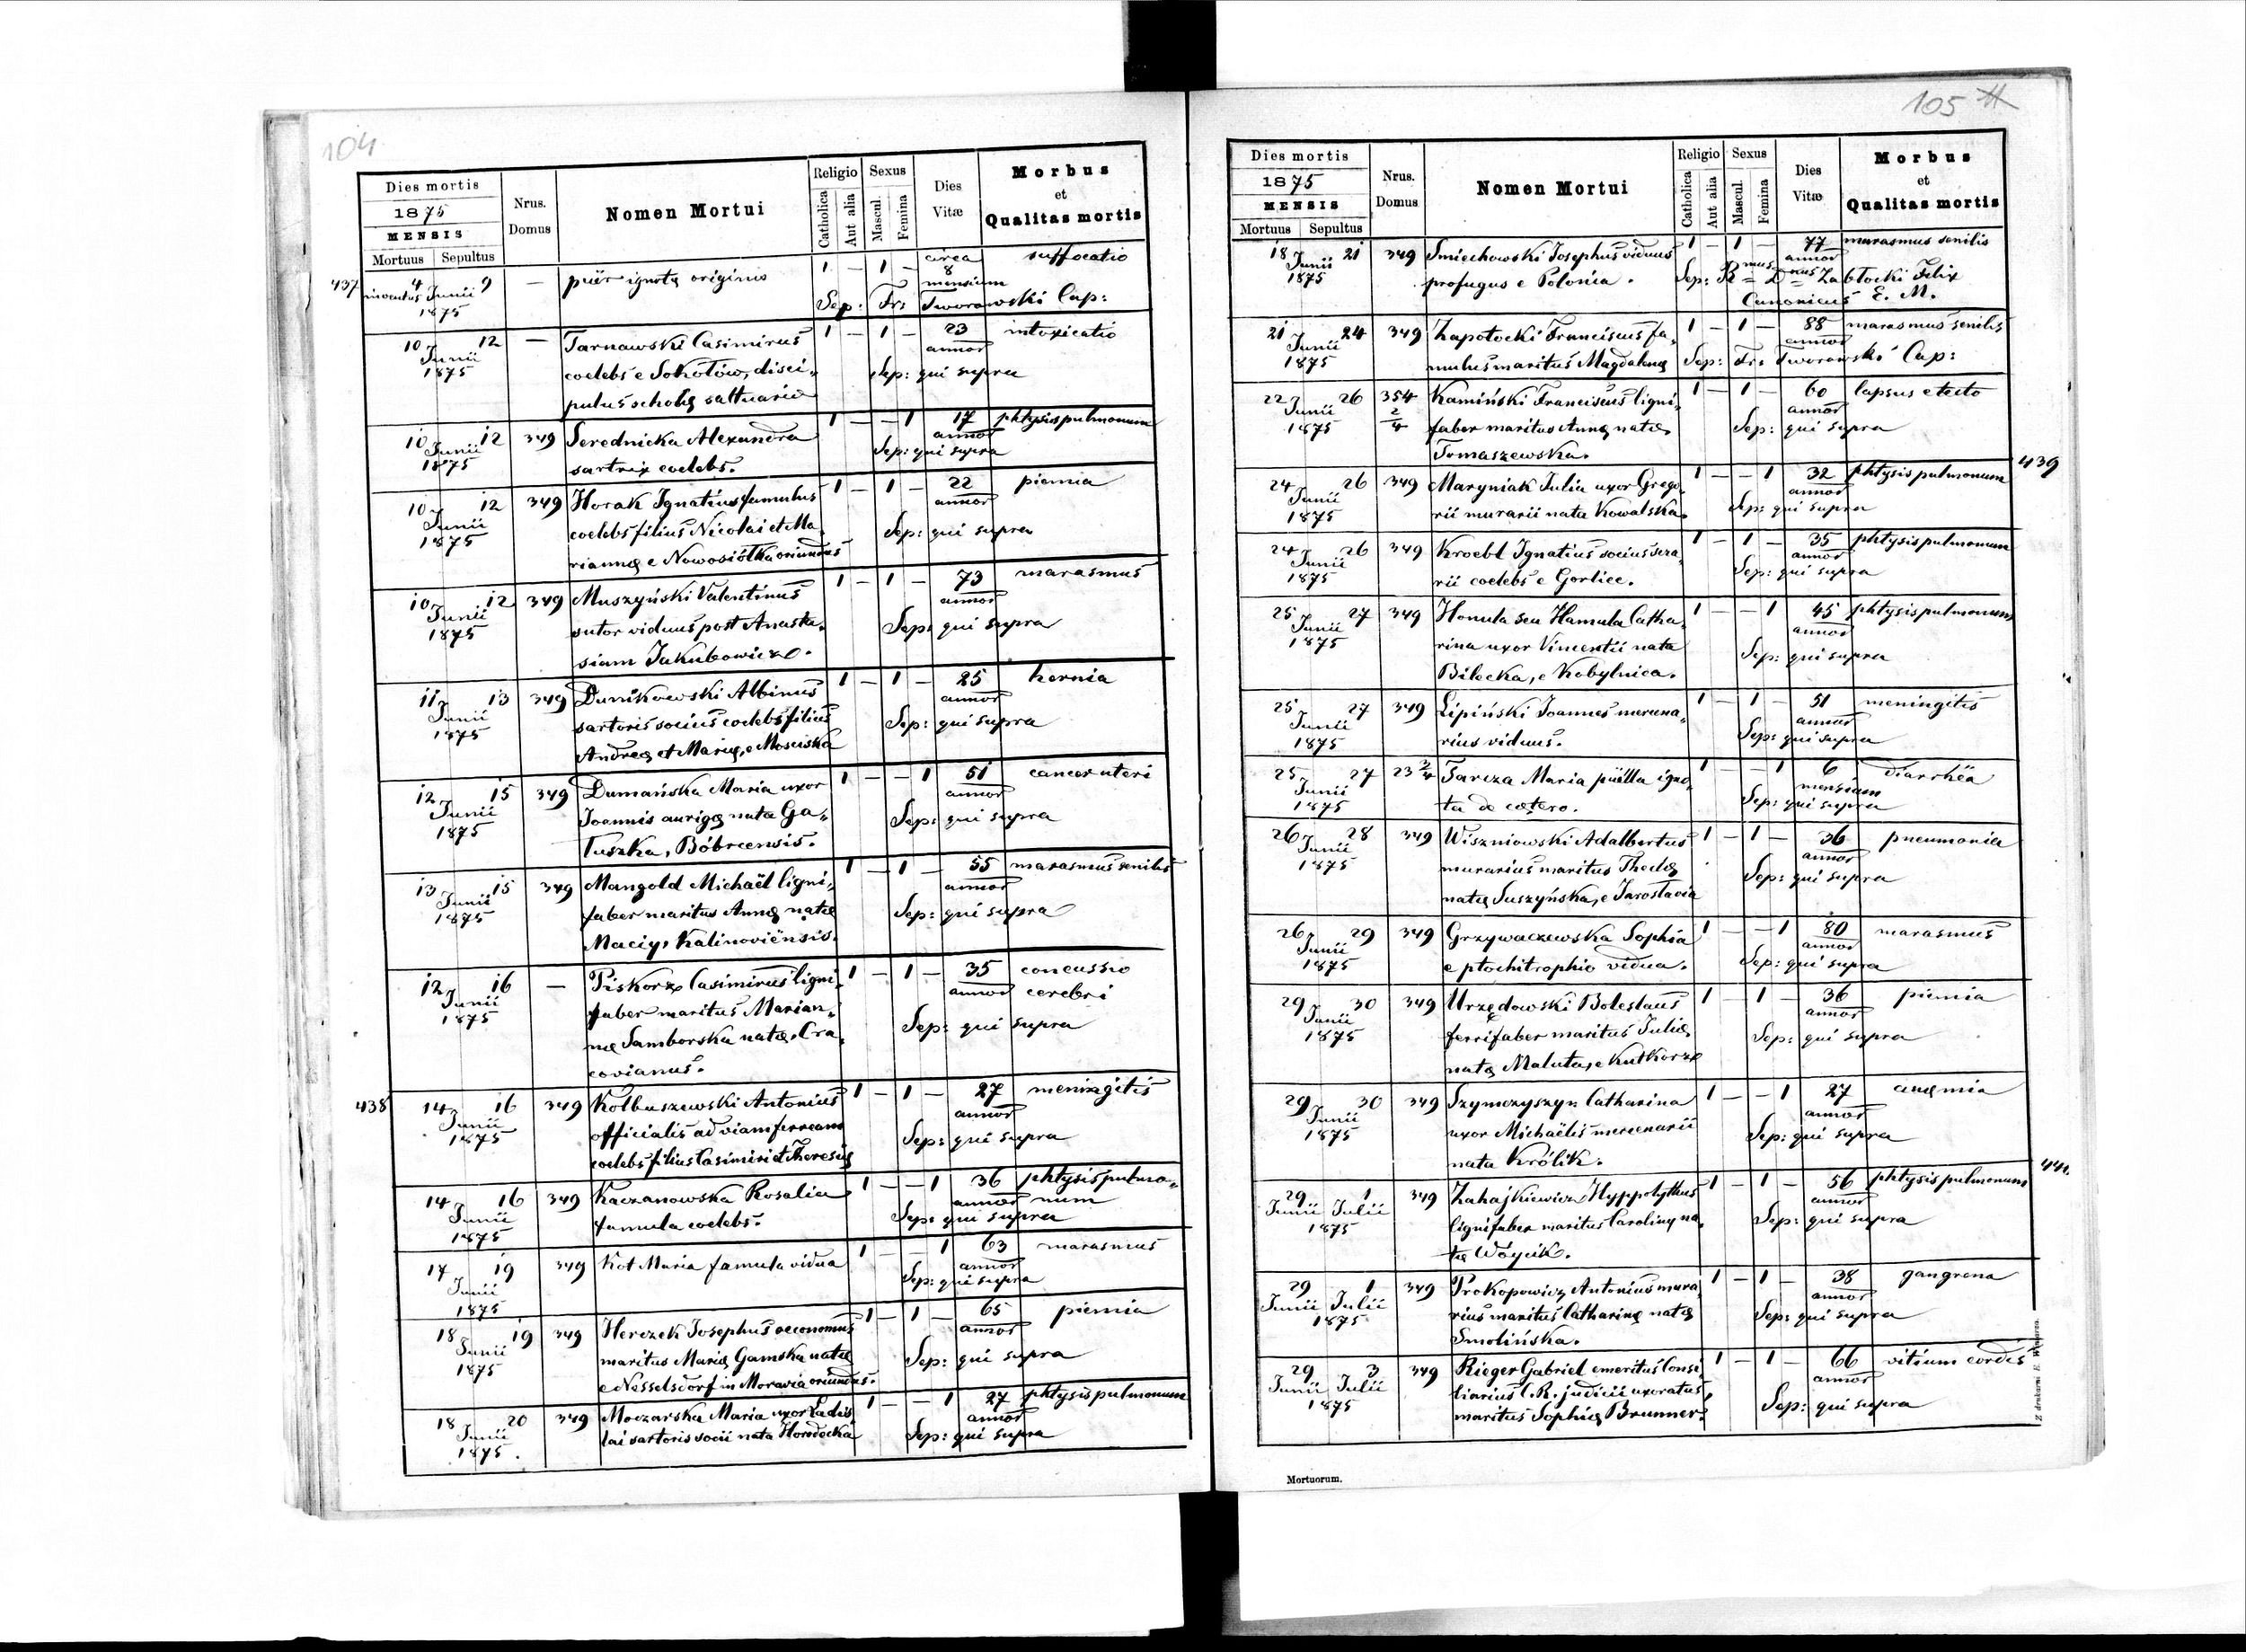 104
Dies mortis
1875
MENSIS
Mortuus Sepultus
Nrus. Domus
Nomen Mortui
Religio
Catholica
Aut alia
Sexus
Mascul.
Femina
Dies Vitæ
Morbus
et
Qualitas mortis
437 4 9 — puër ignotę originis 1 — 1 — circa 8 mensium suffocatio
inventus Junii
1875 Sep: Fr: Tworowski Cap:
10 12 — Tarnawski Casimirus 1 — 1 — 23 intoxicatio
Junii coelebs e Sokołów, disci- annor
1875 pulus scholę saltuariæ Sep: qui supra
10 12 349 Serednicka Alexandra 1 — — 1 17 phtysis pulmonum
Junii sartrix coelebs. annor
1875 Sep: qui supra
10 12 349 Horak Ignatius famulus 1 — 1 — 22 piemia
Junii coelebs filius Nicolai et Ma- annor
1875 riannę e Nowosiółka oriundus Sep: qui supra
10 12 349 Muszyński Valentinus 1 — 1 — 73 marasmus
Junii sutor viduus post Anasta- annor
1875 siam Jakubowicz. Sep: qui supra
11 13 349 Dunikowski Albinus 1 — 1 — 25 hernia
Junii sartoris socius coelebs filius annor
1875 Andreę et Marię, e Mosciska Sep: qui supra
12 15 349 Dumańska Maria uxor 1 — — 1 51 cancer uteri
Junii Joannis aurigę nata Ga- annor
1875 łuszka, Bóbrcensis. Sep: qui supra
13 15 349 Mangold Michaël ligni- 1 — 1 — 55 marasmus senilis
Junii faber maritus Annę natæ annor
1875 Maciy, Kalinoviënsis. Sep: qui supra
12 16 — Piskorz Casimirus ligni- 1 — 1 — 35 concussio
Junii faber maritus Marian- annor cerebri
1875 næ Samborska natæ, Cra- Sep: qui supra
covianus.
438 14 16 349 Kolbuszewski Antonius 1 — 1 — 27 meningitis
Junii officialis ad viam ferream annor
1875 coelebs filius Casimiri et Theresię Sep: qui supra
14 16 349 Kaczanowska Rosalia 1 — — 1 36 phtysis pulmo-
Junii famula coelebs. annor num
1875 Sep: qui supra
17 19 349 Kot Maria famula vidua 1 — — 1 63 marasmus
Junii annor
1875 Sep: qui supra
18 19 349 Herczek Josephus oeconomus 1 — 1 — 65 piemia
Junii maritus Marię Gamska natæ annor
1875 e Nesselsdorf in Moravia oriundus. Sep: qui supra
18 20 349 Moczarska Maria uxor Ladis- 1 — — 1 27 phtysis pulmonum
Junii lai sartoris socii nata Horodecka annor
1875. Sep: qui supra
105
Dies mortis
1875
MENSIS
Mortuus Sepultus
Nrus. Domus
Nomen Mortui
Religio
Catholica
Aut alia
Sexus
Mascul.
Femina
Dies Vitæ
Morbus
et
Qualitas mortis
18 21 349 Smiechowski Josephus viduus 1 — 1 — 77 marasmus senilis
Junii profugus e Polonia. annor
1875 Sep: Rmus Dnus Zabłocki Felix
Canonicus E. M.
21 24 349 Zapotocki Franciscus fa- 1 — 1 — 88 marasmus senilis
Junii mulus maritus Magdalenę annor
1875 Sep: Fr: Tworowski Cap:
22 26 354 2/4 Kamiński Franciscus ligni- 1 — 1 — 60 lapsus e tecto
Junii faber maritus Annę natæ annor
1875 Tomaszewska. Sep: qui supra
439
24 26 349 Maryniak Julia uxor Grego- 1 — — 1 32 phtysis pulmonum
Junii rii murarii nata Kowalska. annor
1875 Sep: qui supra
24 26 349 Kroebl Ignatius socius sera- 1 — 1 — 35 phtysis pulmonum
Junii rii coelebs e Gorlice. annor
1875 Sep: qui supra
25 27 349 Honula seu Hamula Catha- 1 — — 1 45 phtysis pulmonum
Junii rina uxor Vincentii nata annor
1875 Bilecka, e Kobylnica. Sep: qui supra
25 27 349 Lipiński Joannes mercena- 1 — 1 — 51 meningitis
Junii rius viduus. annor
1875 Sep: qui supra
25 27 23 3/4 Tarcza Maria puëlla igno- 1 — — 1 6 diarrhëa
Junii ta de cætero. mensium
1875 Sep: qui supra
26 28 349 Wiszniowski Adalbertus 1 — 1 — 36 pneumonia
Junii murarius maritus Theclę annor
1875 natę Suszyńska, e Jaroslavia Sep: qui supra
26 29 349 Grzywaczewska Sophia 1 — — 1 80 marasmus
Junii e ptochitrophio vidua. annor
1875 Sep: qui supra
29 30 349 Urzędowski Boleslaus 1 — 1 — 36 piemia
Junii ferrifaber maritus Julię annor
1875 natę Maluta, e Kutkorz Sep: qui supra
29 30 349 Szymczyszyn Catharina 1 — — 1 27 anęmia
Junii uxor Michaëlis mercenarii annor
1875 nata Królik. Sep: qui supra
29 1 349 Zahajkiewicz Hyppolythus 1 — 1 — 56 phtysis pulmonum
Junii Julii lignifaber maritus Carolinę na- annor
1875 tæ Wóycik. Sep: qui supra
29 1 349 Prokopowicz Antonius mura- 1 — 1 — 38 gangrena
Junii Julii rius maritus Catharinę natę annor
1875 Smolińska. Sep: qui supra
29 3 349 Rieger Gabriel emeritus Consi- 1 — 1 — 66 vitium cordis
Junii Julii liarius C. R. judicii uxoratus, annor
1875 maritus Sophię Brunner. Sep: qui supra
Mortuorum.
Z drukarni E. Winiarza.